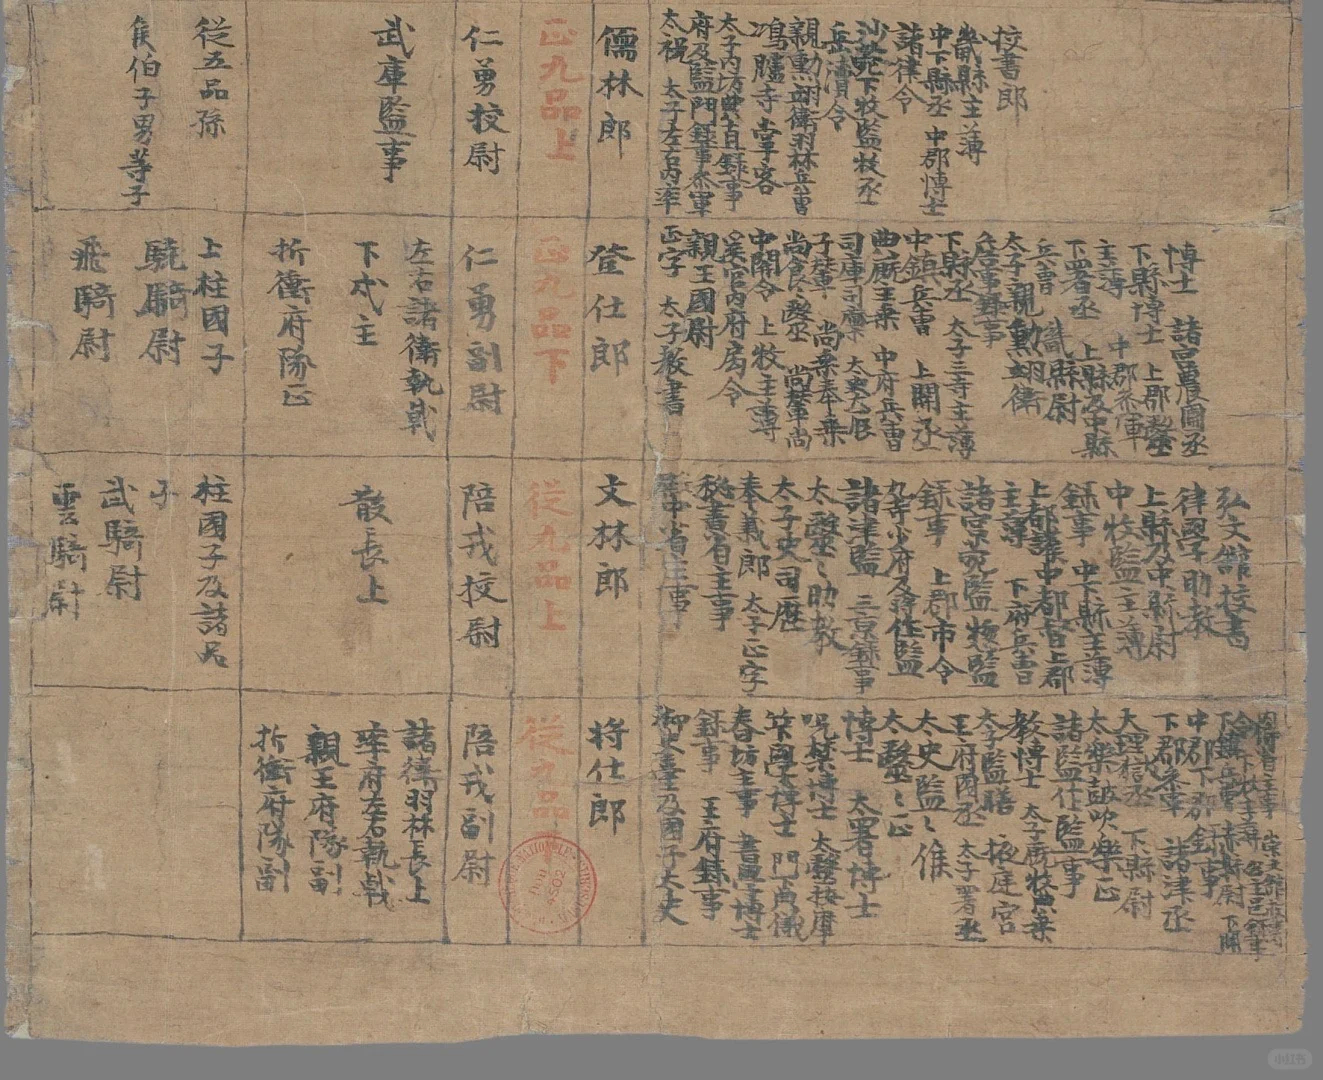 校書郎
畿縣主薄
中下縣丞 中郡博士
諸律令
沙苑下牧監牧丞
岳瀆令
親勳翊衛羽林兵曹
鴻臚寺掌客
太子內坊典直錄事
府及監門錄事參軍
太祝 太子左右內率
儒林郎
正九品上
仁勇校尉
武庫監事
從五品孫
侯伯子男等子
博士 諸冶農圃丞
下縣博士 上郡醫
主薄 中郡參軍
下署丞 上縣及中縣
兵曹 畿縣尉
太子親勳翊衛
兵曹錄事
下縣丞 太子三寺主薄
中鎮兵曹 上關丞
曲廐主乘 中府兵曹
司庫司廩
子輦 尚乘奉乘
尚食醫 尚輦尚
中關令 上牧主薄
奚官內府局令
親王國尉
正字 太子教書
登仕郎
正九品下
仁勇副尉
左右諸衛執戟
下戍主
折衝府隊正
上柱國子
驍騎尉
飛騎尉
弘文館校書
律國子助教
上縣及中縣尉
中牧監主薄
錄事 中下縣主薄
上都護中都督上郡
主薄 下府兵曹
諸宮京苑監 牧監
錄事 上郡市令
九寺少府及將作監
諸津監 三京錄事
太醫〻助教
太子史司歷
奉義郎 太子正字
秘書省主事
中省主事
文林郎
從九品上
陪戎校尉
散長上
柱國子及諸品
子
武騎尉
雲騎尉
下鎮兵曹 赤縣尉 下關
中郡下郡錄事
下郡參軍 諸津丞
大理獄丞 下縣尉
太樂鼓吹樂正
諸監作監事
教博士 太子廐牧典乘
太子監膳 掖庭宮
王府國丞 太子署丞
太史監〻候
太醫〻正
博士 太署博士
呪禁博士 太醫按摩
筭學博士 門下典儀
春坊主事 書學博士
錄事 王府錄事
御史臺及國子大丈
將仕郎
從九品
陪戎副尉
諸衛羽林長上
率府左右執戟
親王府隊副
折衝府隊副
小红书